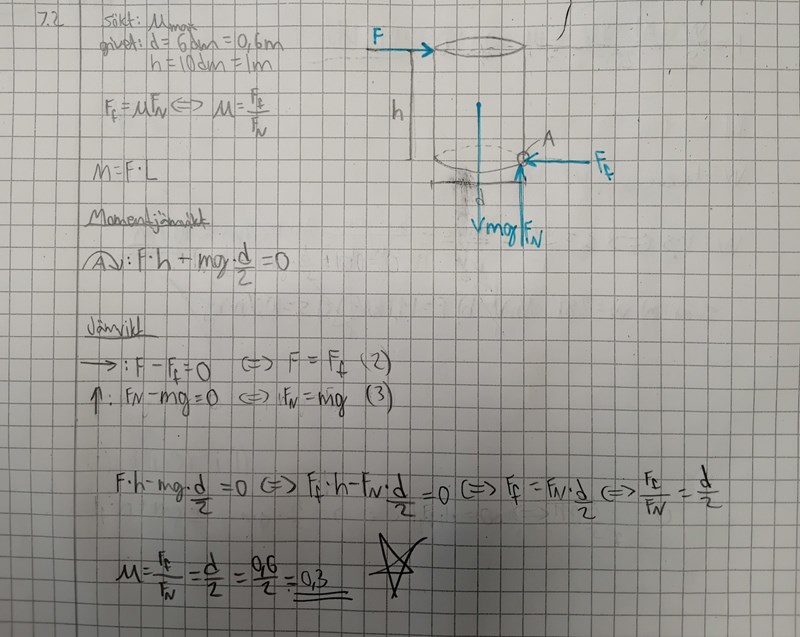 7.2 Sökt: μmax
givet: d = 6dm = 0,6m
h = 10dm = 1m
F_f = μF_N ⇔ μ = F_f/F_N
M = F·L
Momentjämvikt
A: F·h + mg·d/2 = 0
Jämvikt
→: F - F_f = 0 ⇔ F = F_f (2)
↑: F_N - mg = 0 ⇔ F_N = mg (3)
F·h - mg·d/2 = 0 ⇔ F_f·h - F_N·d/2 = 0 ⇔ F_f = F_N·d/2 ⇔ F_f/F_N = d/2
μ = F_f/F_N = d/2 = 0,6/2 = 0,3
F
h
A
F_f
d
mg
F_N